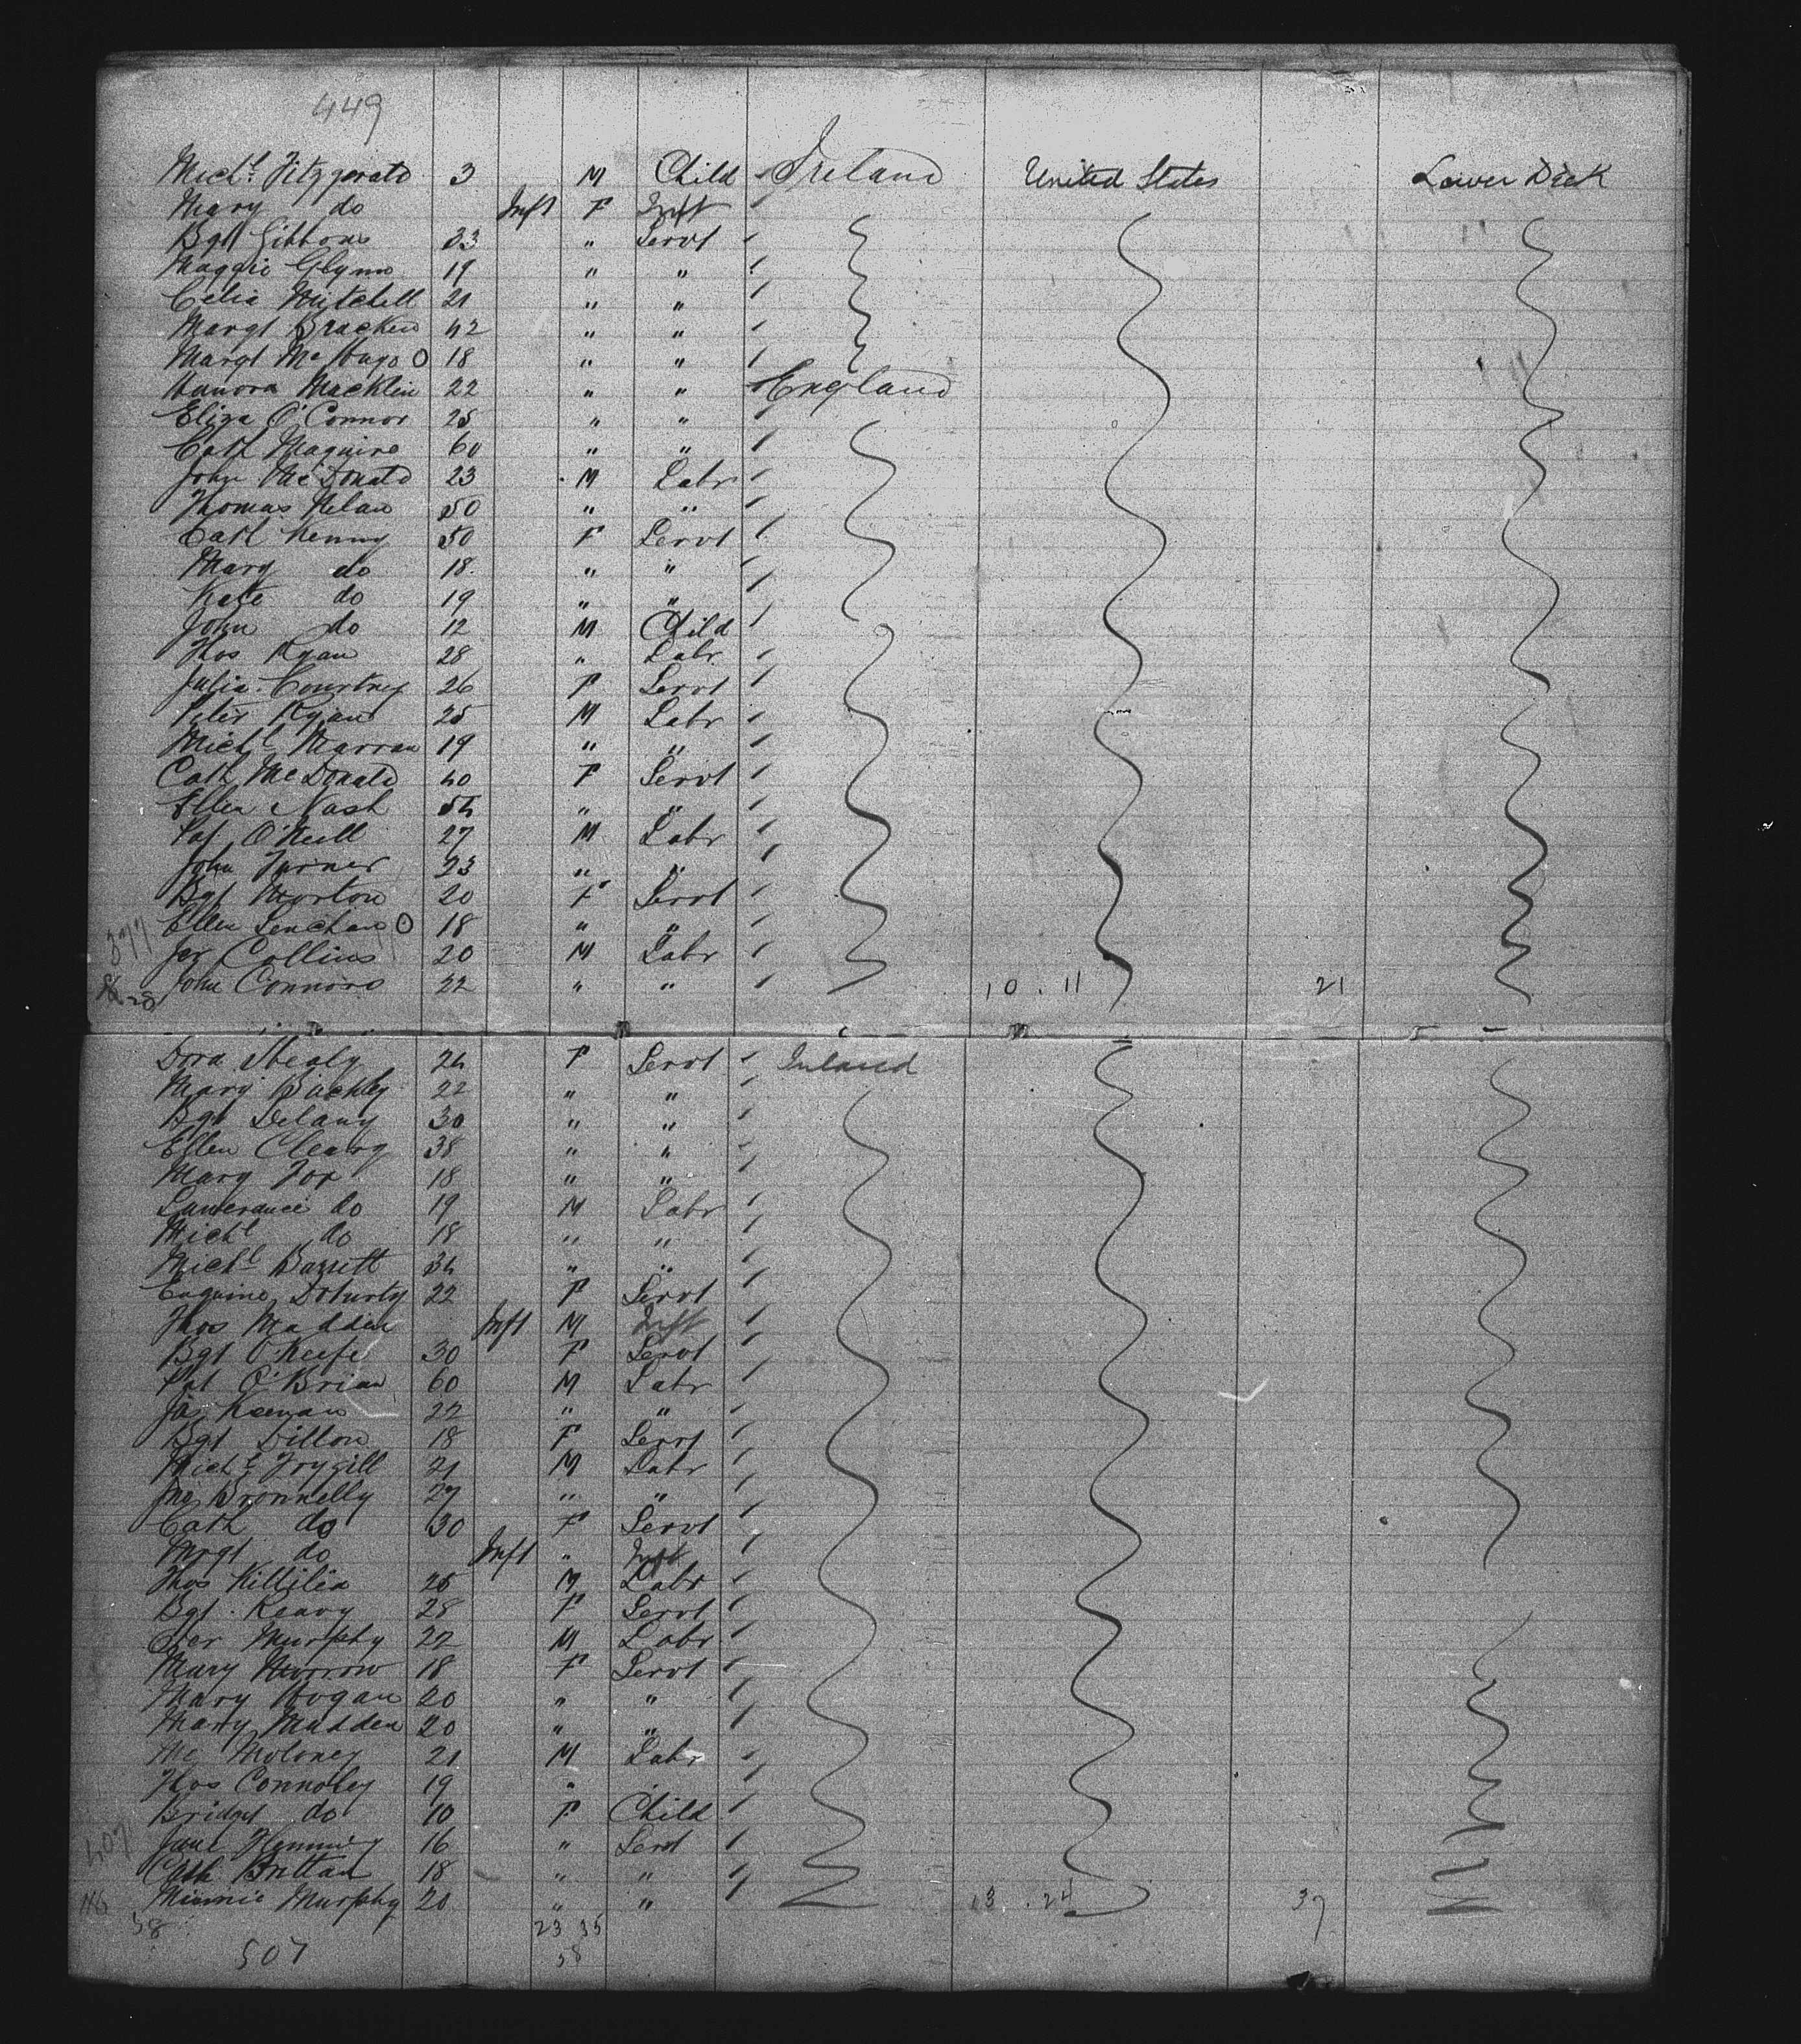 449
Michl Fitzgerald 3 M Child Ireland United States Lower Deck
Mary do Inft F Inft
Bgt Gibbons 23 " Servt
Maggie Glynn 19 " "
Celia Mitchell 21 " "
Margt Bracken 42 " "
Margt McHugo O 18 " "
Hanora Macklin 22 " " England
Eliza O'Connor 25 " "
Cath Maguire 60 " "
John McDonald 23 M Labr
Thomas Nelan 50 " "
Cath Kenny 50 F Servt
Mary do 18 " "
Kate do 19 " "
John do 12 M Child
Thos Ryan 28 " Labr
Julia Courtney 26 F Servt
Peter Ryan 25 M Labr
Michl Marran 19 " "
Cath McDonald 40 F Servt
Ellen Nash 54 " "
Pat O'Neill 27 M Labr
John Turner 23 " "
Bgt Morton 20 F Servt
377 Ellen Lenehan O 18 " "
Jer Collins 20 M Labr
28 John Connors 22 " " 10 . 11 21
Dora Healy 24 F Servt Ireland
Mary Buckley 22 " "
Bgt Delany 30 " "
Ellen Cleary 38 " "
Mary Fox 18 " "
Lawerance do 19 M Labr
Michl do 18 " "
Michl Barrett 34 " "
Eugine Doherty 22 F Servt
Thos Madden Inft M Inft
Bgt O'Keefe 30 F Servt
Pat O'Brian 60 M Labr
Jas Keenan 22 " "
Bgt Dillon 18 F Servt
Michl 21 M Labr
Jno Bronnelly 27 " "
Cath do 30 F Servt
Mrgt do Inft " Inft
Thos Killilea 25 M Labr
Bgt Keavy 28 F Servt
Jer Murphy 22 M Labr
Mary Morrow 18 F Servt
Mary Hogan 20 " "
Mary Madden 20 " "
Mc Moloney 21 M Labr
Thos Connoley 19 "
Bridget do 10 F Child
407 Jane 16 " Servt
Cath Brittan 18 " "
Minnie Murphy 20 " " 13 . 24 37
58 23 35
507 58